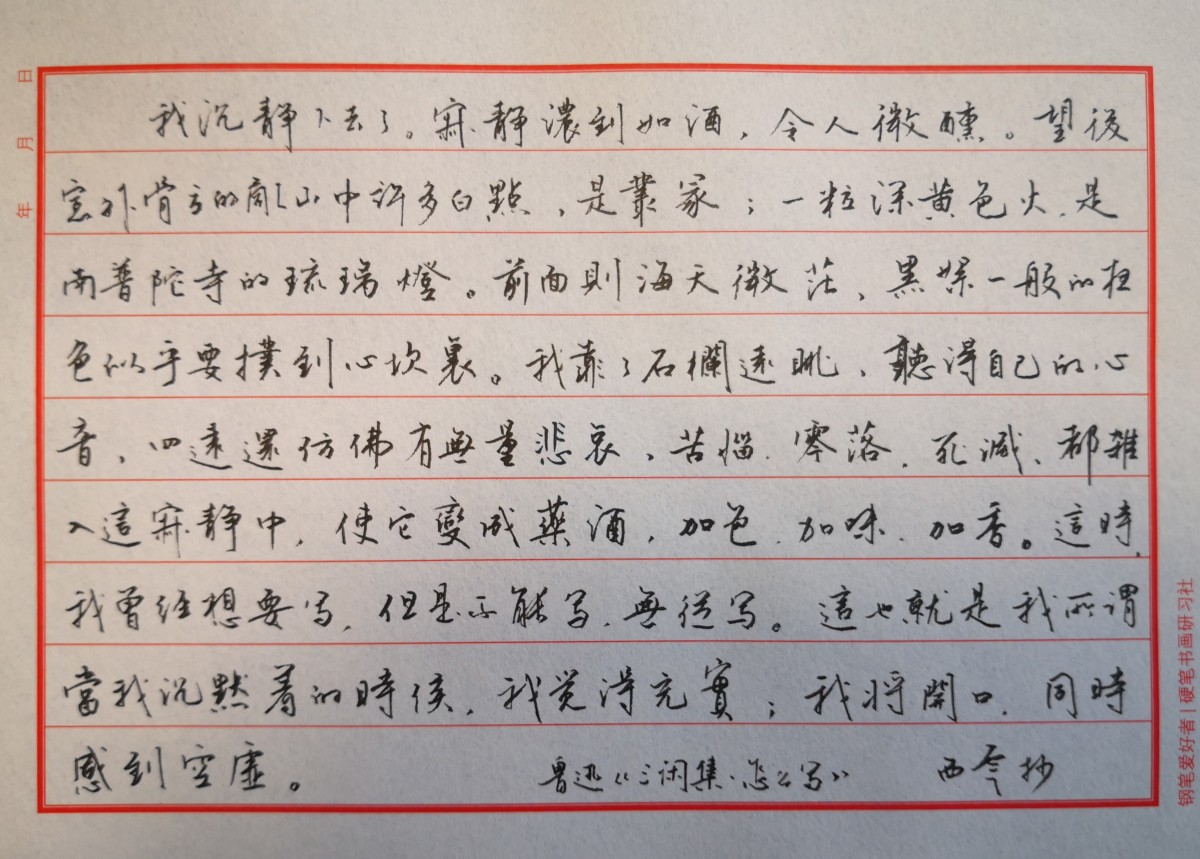 年 月 日
我沉静下去了。寂静濃到如酒，令人微醺。望後
窗外骨立的亂山中許多白點，是叢冢；一粒深黄色火，是
南普陀寺的琉璃燈。前面則海天微茫，黑絮一般的夜
色似乎要撲到心坎裏。我靠了石欄遠眺，聽得自己的心
音，四遠還仿佛有無量悲哀，苦惱，零落，死滅，都雜
入這寂静中，使它變成藥酒，加色，加味，加香。這時，
我曾经想要写，但是不能写，無從写。這也就是我所謂
當我沉默着的時候，我觉得充實；我將開口，同時
感到空虛。 鲁迅《三闲集·怎么写》 西 抄
钢笔爱好者 | 硬笔书画研习社